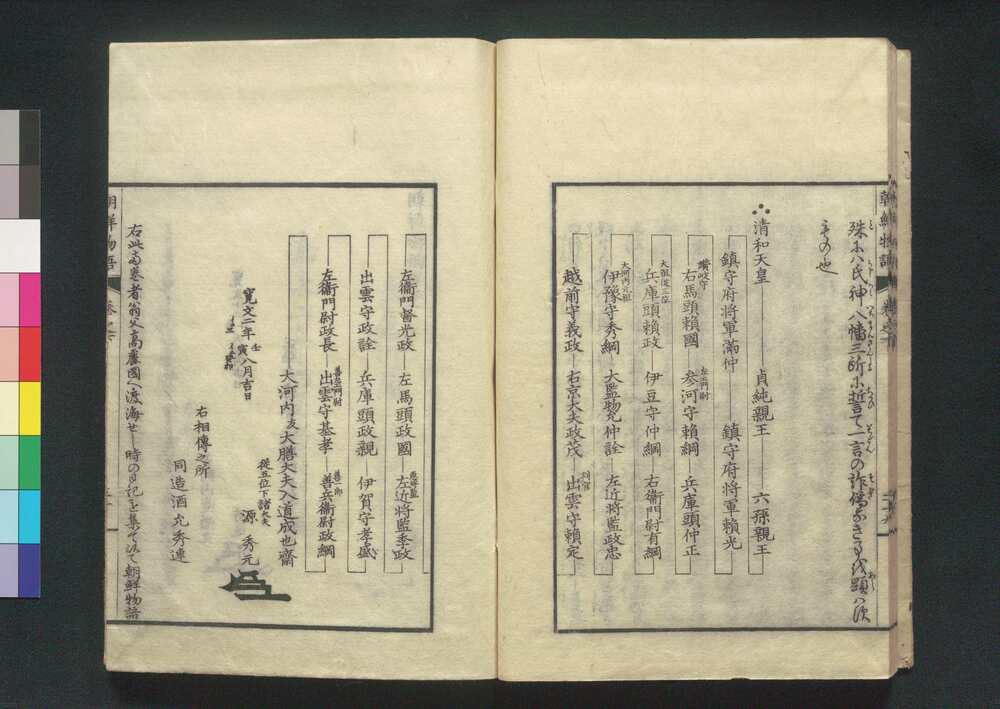 朝鮮物語
殊に八氏神八幡三所に誓て一言の詐偽なきもの也
もの也
清和天皇 貞純親王 六孫親王
鎮守府将軍滿仲 鎮守府将軍頼光
讃岐守
右馬頭頼國 左衛門尉 参河守頼綱 兵庫頭仲正
兵庫頭頼政 伊豆守仲綱 右衞門尉有綱
大河内元祖
伊豫守秀綱 大監物仲詮 左近将監政忠
越前守義政 右京大夫政茂 出雲守頼定
左衞門督光政 左馬頭政國 左近将監季政
出雲守政詮 兵庫頭政親 伊賀守孝盛
左衞門尉政長 善左衛門尉 出雲守基孝 善一郎 善兵衞尉政綱
大河内大膳大夫入道成也齋
寛文二年壬寅八月吉日
従五位下諸大夫
源 秀元
右相傳之所
同造酒丸秀連
右此両巻者翁父高麗國へ渡海せし時の日記を集て朝鮮物語
朝鮮物語